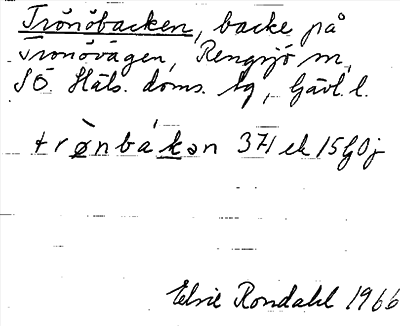 Trönöbacken, backe på
Trönövägen, Rengsjö sn,
SÖ. Häls. doms. tg, Gävl. l.
trø̀nbákən 371 ek 15G0j
Elsie Rondahl 1966